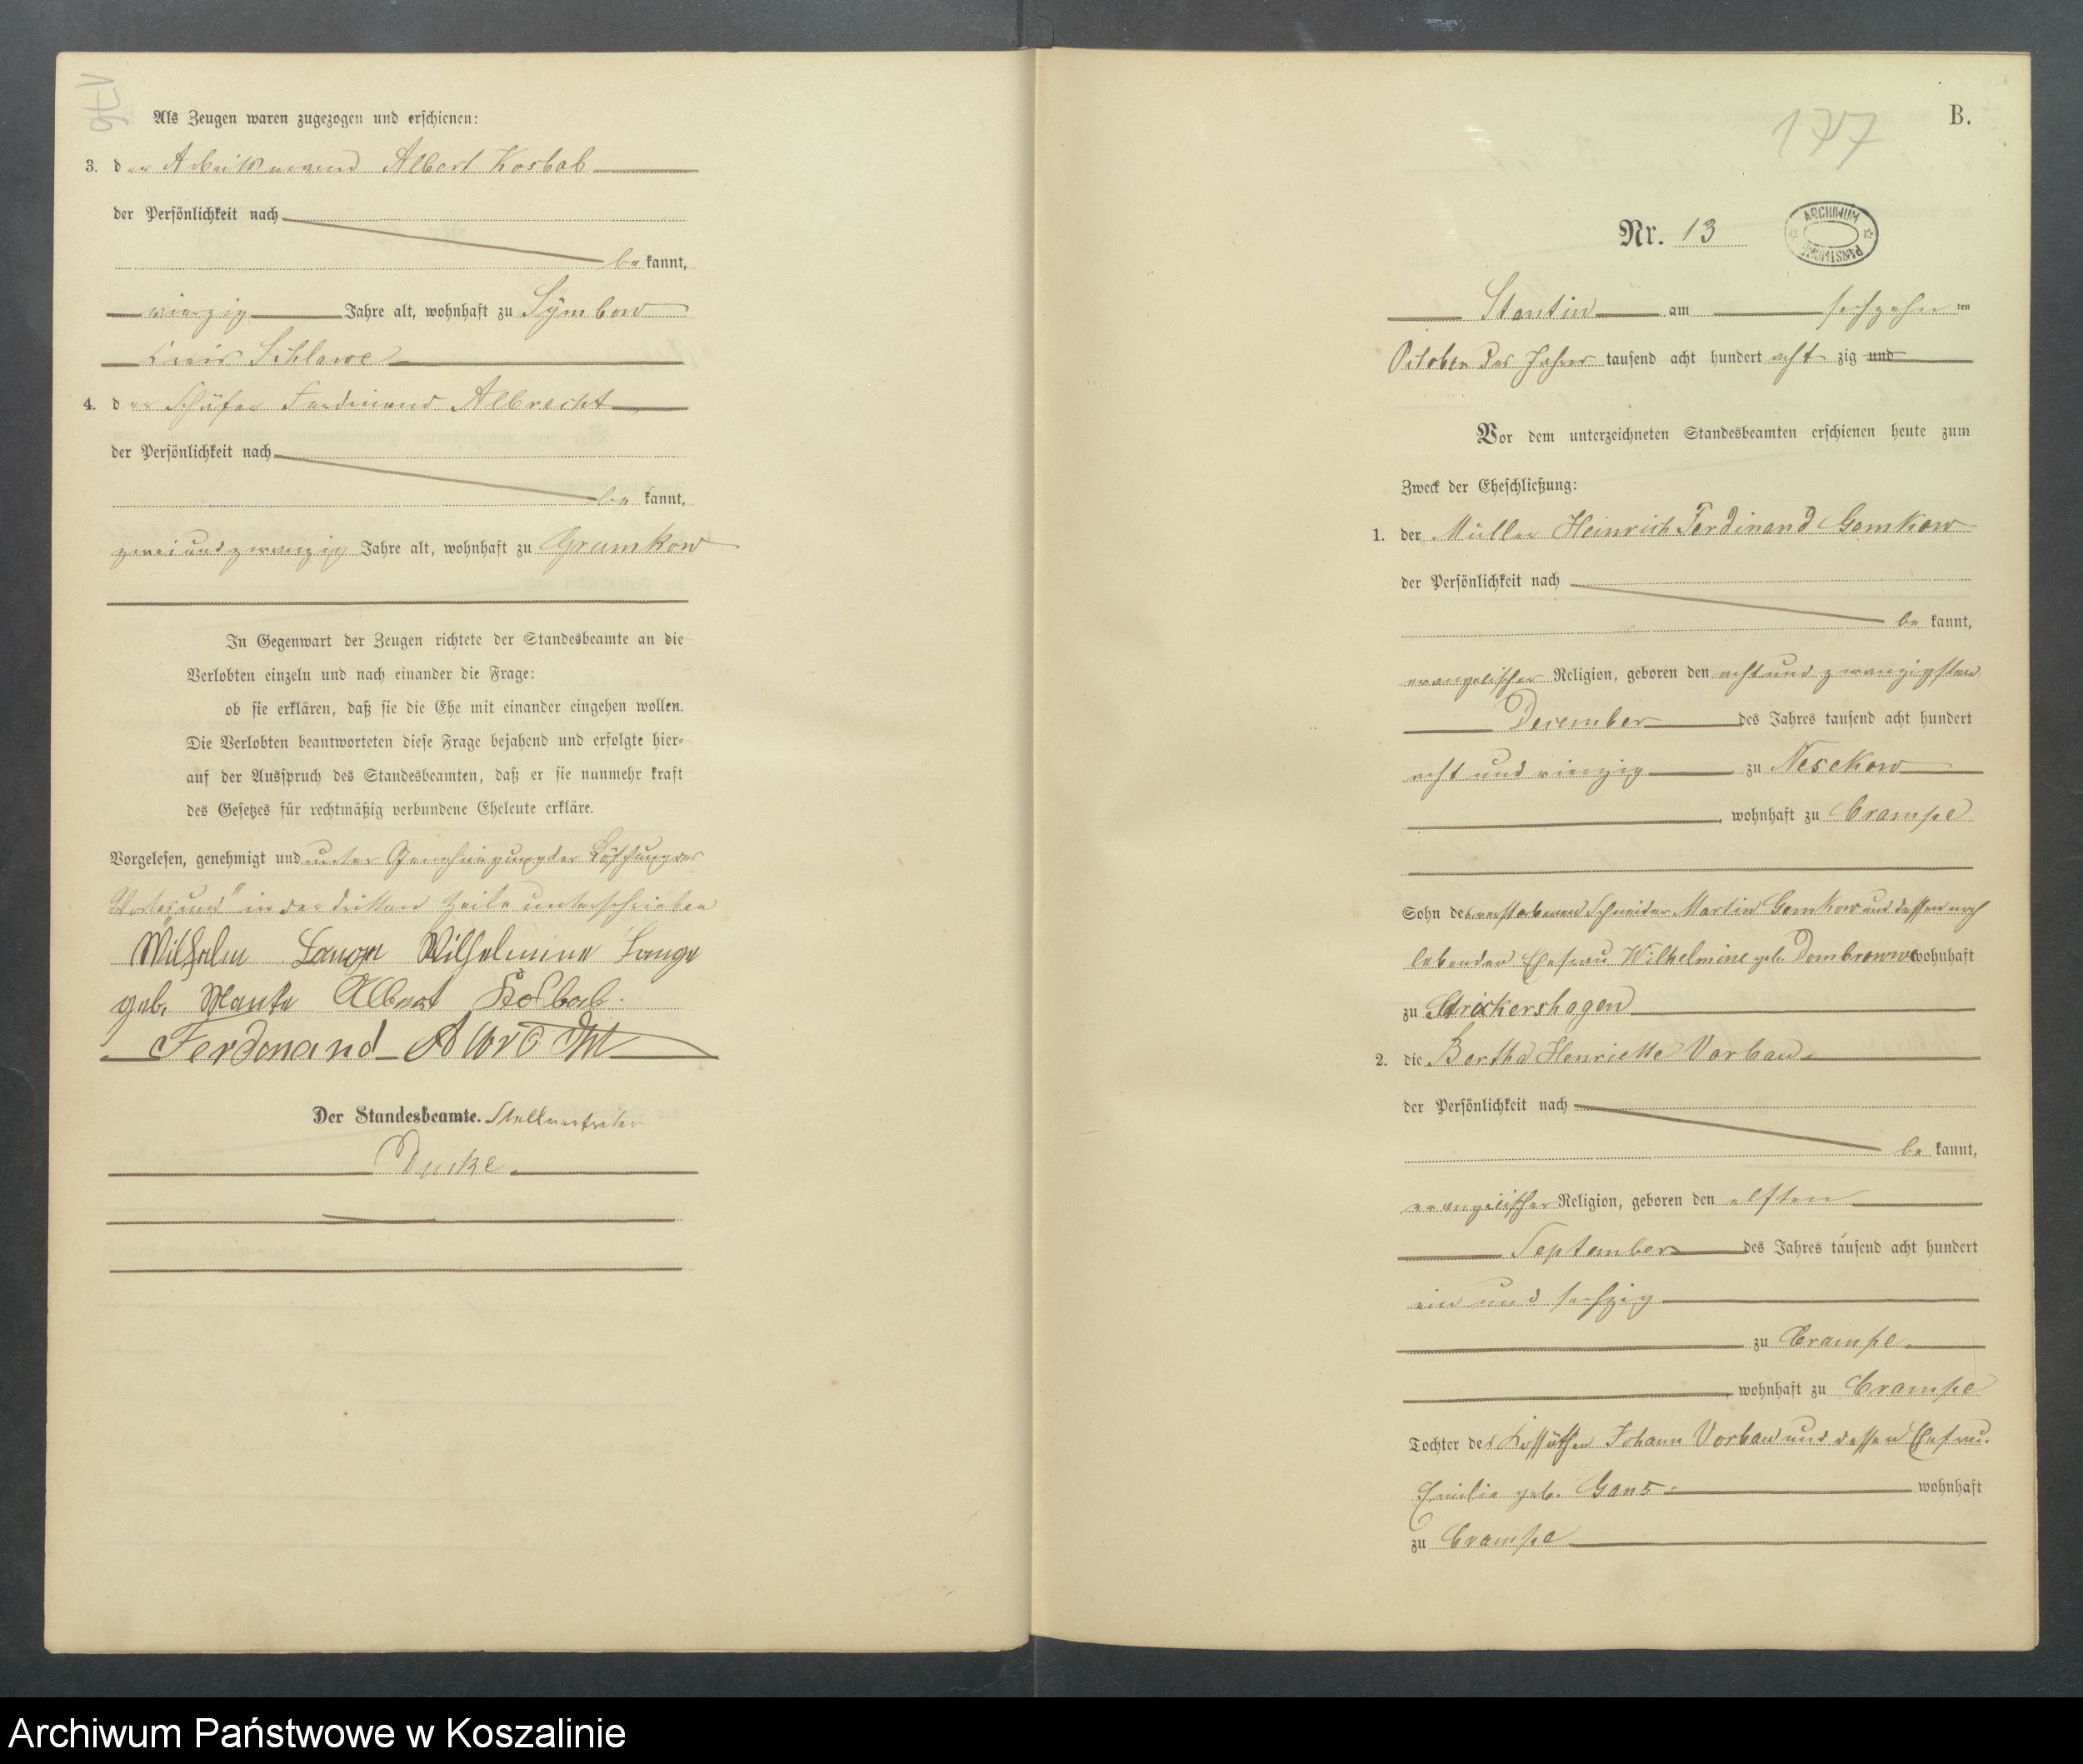 Als Zeugen waren zugezogen und erschienen:
3. der Arbeitsmann Albert Kosbab
der Persönlichkeit nach
be kannt,
vierzig Jahre alt, wohnhaft zu Symbow
Kreis Schlawe
4. der Schäfer Ferdinand Albrecht
der Persönlichkeit nach
be kannt,
zwei und zwanzig Jahre alt, wohnhaft zu Grumkow
In Gegenwart der Zeugen richtete der Standesbeamte an die
Verlobten einzeln und nach einander die Frage:
ob sie erklären, daß sie die Ehe mit einander eingehen wollen.
Die Verlobten beantworteten diese Frage bejahend und erfolgte hier=
auf der Ausspruch des Standesbeamten, daß er sie nunmehr kraft
des Gesetzes für rechtmäßig verbundene Eheleute erkläre.
Vorgelesen, genehmigt und unter Genehmigung der Löschung des
Wortes „und" in der dritten Zeile unterschrieben
Wilhelm Lange Wilhelmine Lange
geb. Albert Kosbab.
Ferdinand Albrecht
Der Standesbeamte. Stellvertreter
177
B.
Nr. 13
ARCHIWUM PAŃSTWOWE
Stantin am sechzehn ten
October des Jahres tausend acht hundert acht zig und
Vor dem unterzeichneten Standesbeamten erschienen heute zum
Zweck der Eheschließung:
1. der Müller Heinrich Ferdinand Gomkow
der Persönlichkeit nach
be kannt,
evangelischer Religion, geboren den acht und zwanzigsten
December des Jahres tausend acht hundert
acht und vierzig zu Nesekow
, wohnhaft zu Crampe
Sohn des verstorbenen Schneider Martin Gomkow und dessen noch
lebenden Ehefrau Wilhelmine geb. Dombrowwe wohnhaft
zu Strickershagen
2. die Bertha Henriette Vorbau
der Persönlichkeit nach
be kannt,
evangelischer Religion, geboren den elften
September des Jahres tausend acht hundert
ein und sechzig
zu Crampe
, wohnhaft zu Crampe
Tochter des Kossäthen Johann Vorbau und dessen Ehefrau
Emilie geb. Gans wohnhaft
zu Crampe
Archiwum Państwowe w Koszalinie